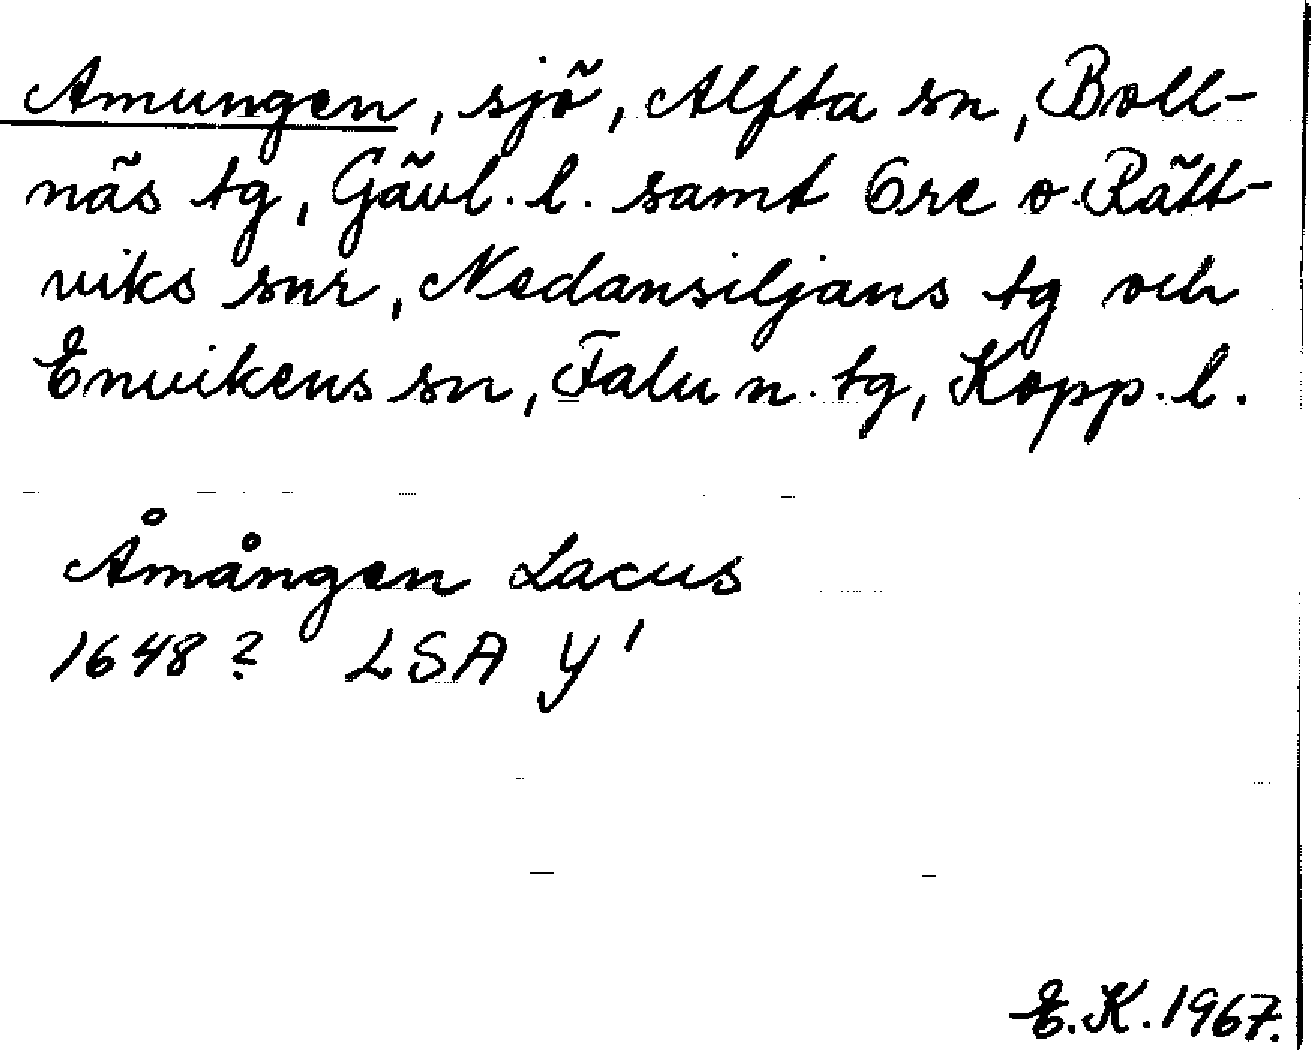 Amungen, sjö, Alfta sn, Boll-
näs tg, Gävl. l. samt Ore o. Rätt-
viks snr, Nedansiljans tg och
Envikens sn, Falu n. tg, Kopp. l.
Åmången Lacus
1648? LSA Y1
E.K. 1967.